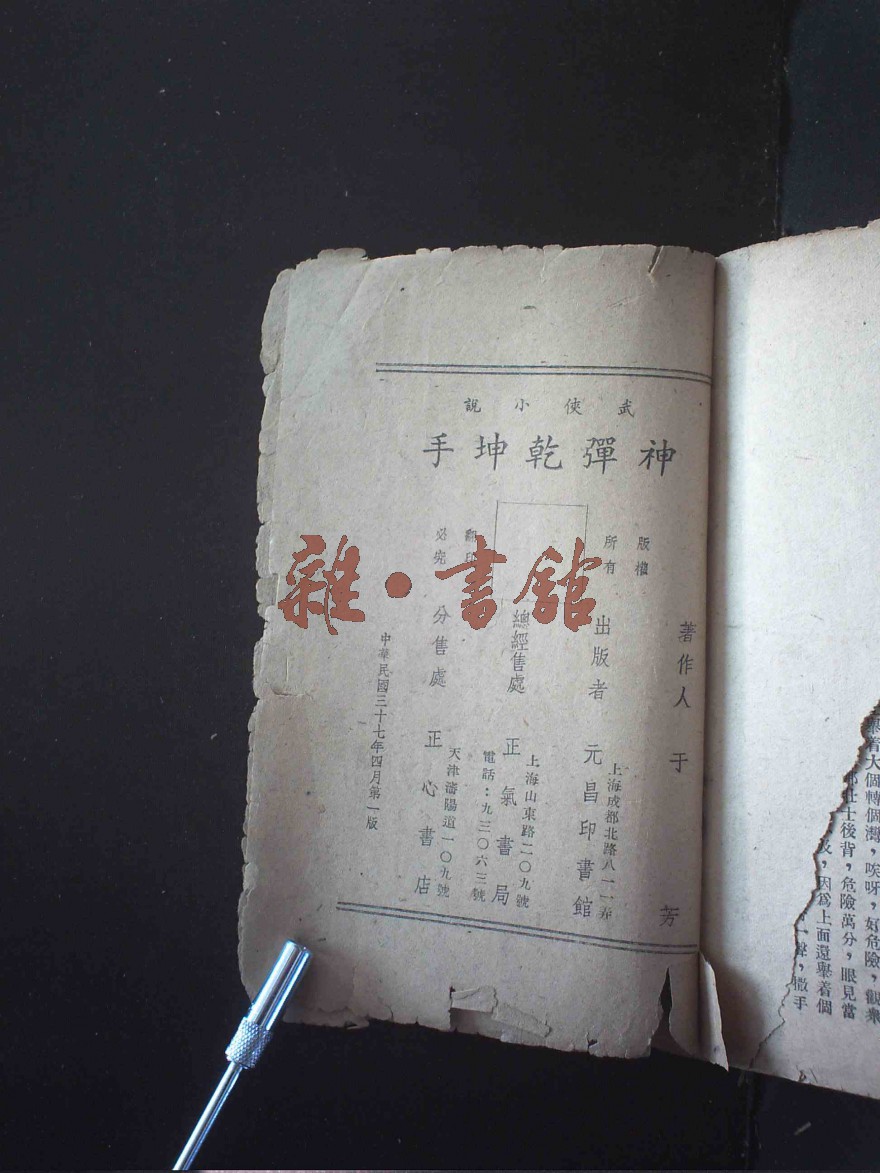 武俠小說
神彈乾坤手
版權
所有
翻印
必究
著作人 于芳
出版者 元昌印書館
上海成都北路八一一弄
總經售處 正氣書局
上海山東路二〇九號
電話：九三〇六三號
分售處 正心書店
天津瀋陽道一〇九號
中華民國三十七年四月第一版
雜·書館
着大個轉個灣，唉呀，好危險，觀衆
壯士後背，危險萬分，眼見當
，因爲上面還舉着個
一聲，撒手